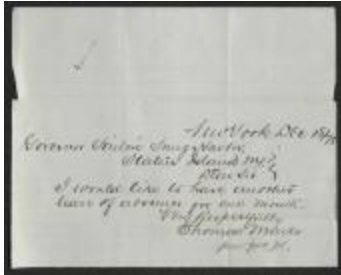 New York Dec
Governor Sailors Snug Harbor
Staten Island
Dear Sir
I would like to have another
leave of absence for one month
Very Respectfully
Thomas